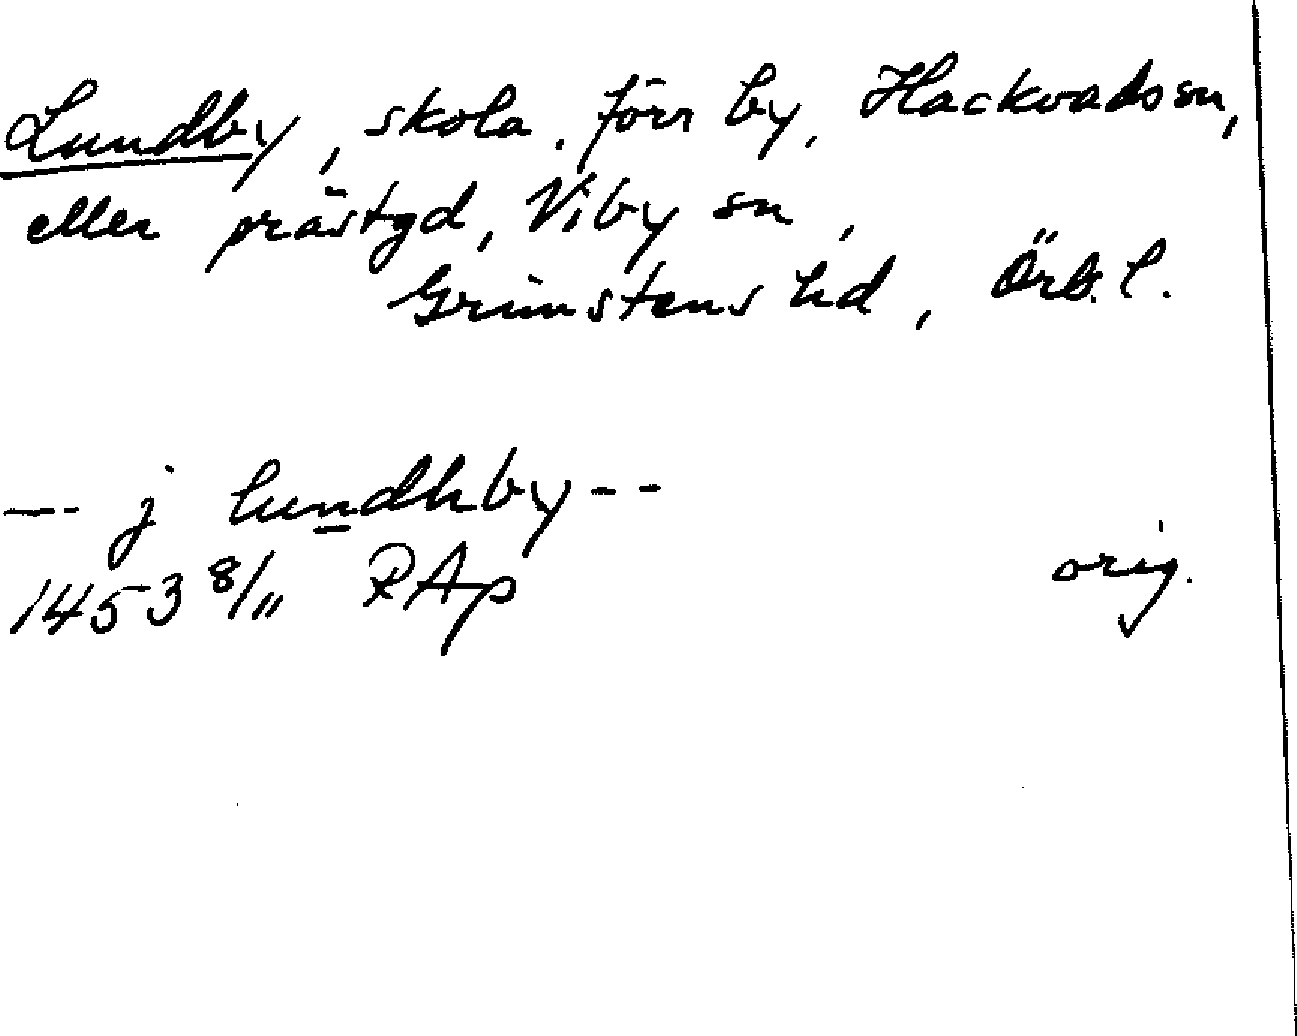 Lundby, skola, förr by, Hackvads sn,
eller prästgd, Viby sn,
Grimstens hd, Örb. l.
-- j lundhby --
1453 8/11 RAp orig.